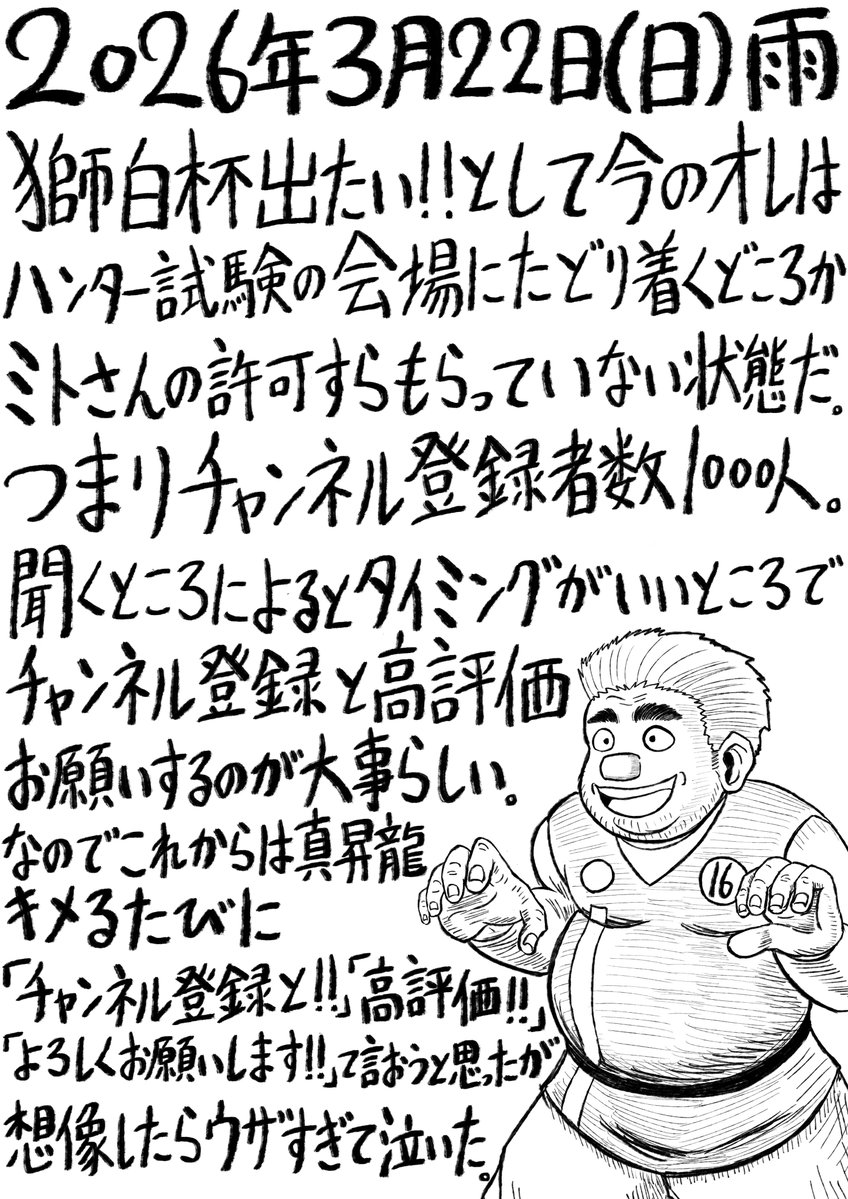 2026年3月22日(日)雨
獅白杯出たい!!として今のオレは
ハンター試験の会場にたどり着くどころか
ミトさんの許可すらもらっていない状態だ。
つまりチャンネル登録者数1000人。
聞くところによるとタイミングがいいところで
チャンネル登録と高評価
お願いするのが大事らしい。
なのでこれからは真昇龍
キメるたびに
「チャンネル登録と!!」「高評価!!」
「よろしくお願いします!!」て言おうと思ったが
想像したらウザすぎて泣いた。
16